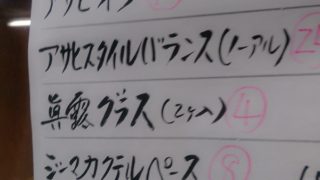 アサヒスタイルバランス(ノーアル)
眞露グラス(2ヶ入) 4
ジーマカクテルベース